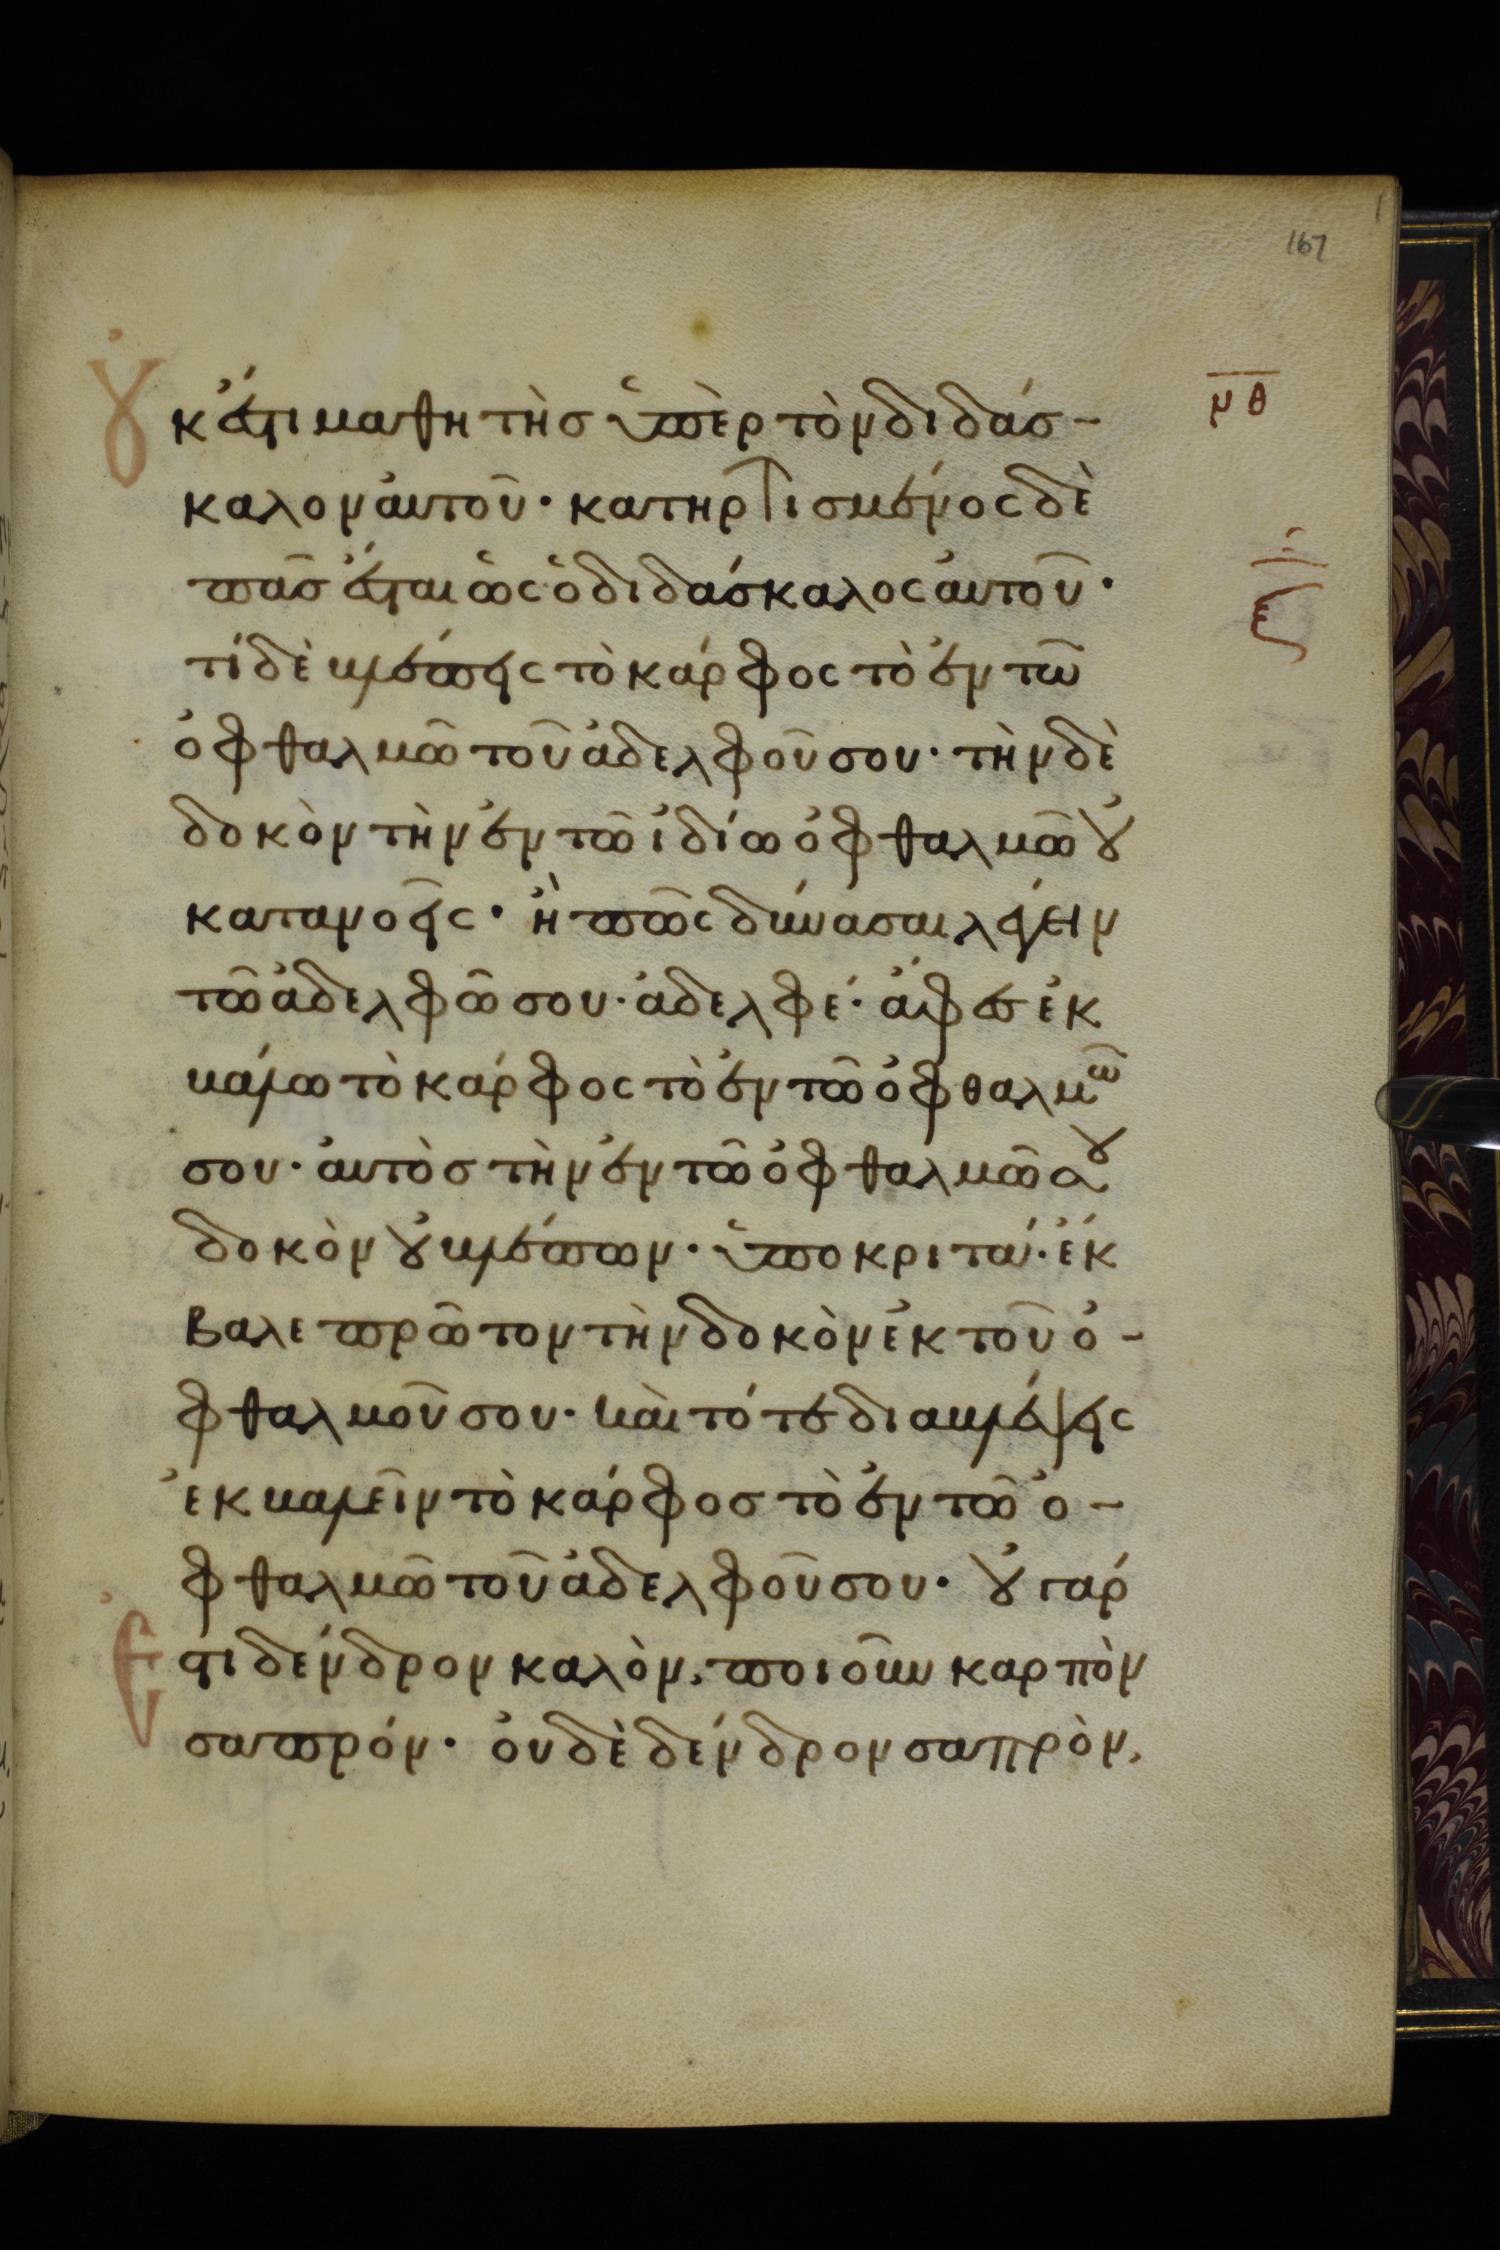 167
οὐκ ἔστι μαθητὴσ ὑπὲρ τὸν διδάσ-
καλον ἀυτοῦ· κατηρτισμένος δὲ
πᾶσ ἔσται ὡς ὁ διδάσκαλος ἀυτοῦ·
τί δὲ βλέπεις τὸ κάρφος τὸ ἐν τῶ
ὀφθαλμῶ τοῦ ἀδελφοῦ σου· τὴν δὲ
δοκὸν τὴν ἐν τῶ ἰδίω ὀφθαλμῶ οὐ
κατανοεῖς· ἢ πῶς δύνασαι λέγειν
τῶ ἀδελφῶ σου· ἀδελφέ· ἄφεσ ἐκ
βάλω τὸ κάρφος τὸ ἐν τῶ ὀφθαλμῶ
σου· ἀυτὸσ τὴν ἐν τῶ ὀφθαλμῶ σου
δοκὸν οὐ βλέπων· ὑποκριτά· ἔκ
βαλε πρῶτον τὴν δοκὸν ἐκ τοῦ ὀ-
φθαλμοῦ σου· καὶ τότε διαβλέψεις
ἐκβαλεῖν τὸ κάρφοσ τὸ ἐν τῶ ὀ-
φθαλμῶ τοῦ ἀδελφοῦ σου· οὐ γάρ
ἐστι δένδρον καλὸν, ποιοῦν καρπὸν
σαπρόν· ὀυδὲ δένδρον σαπρὸν,
μθ